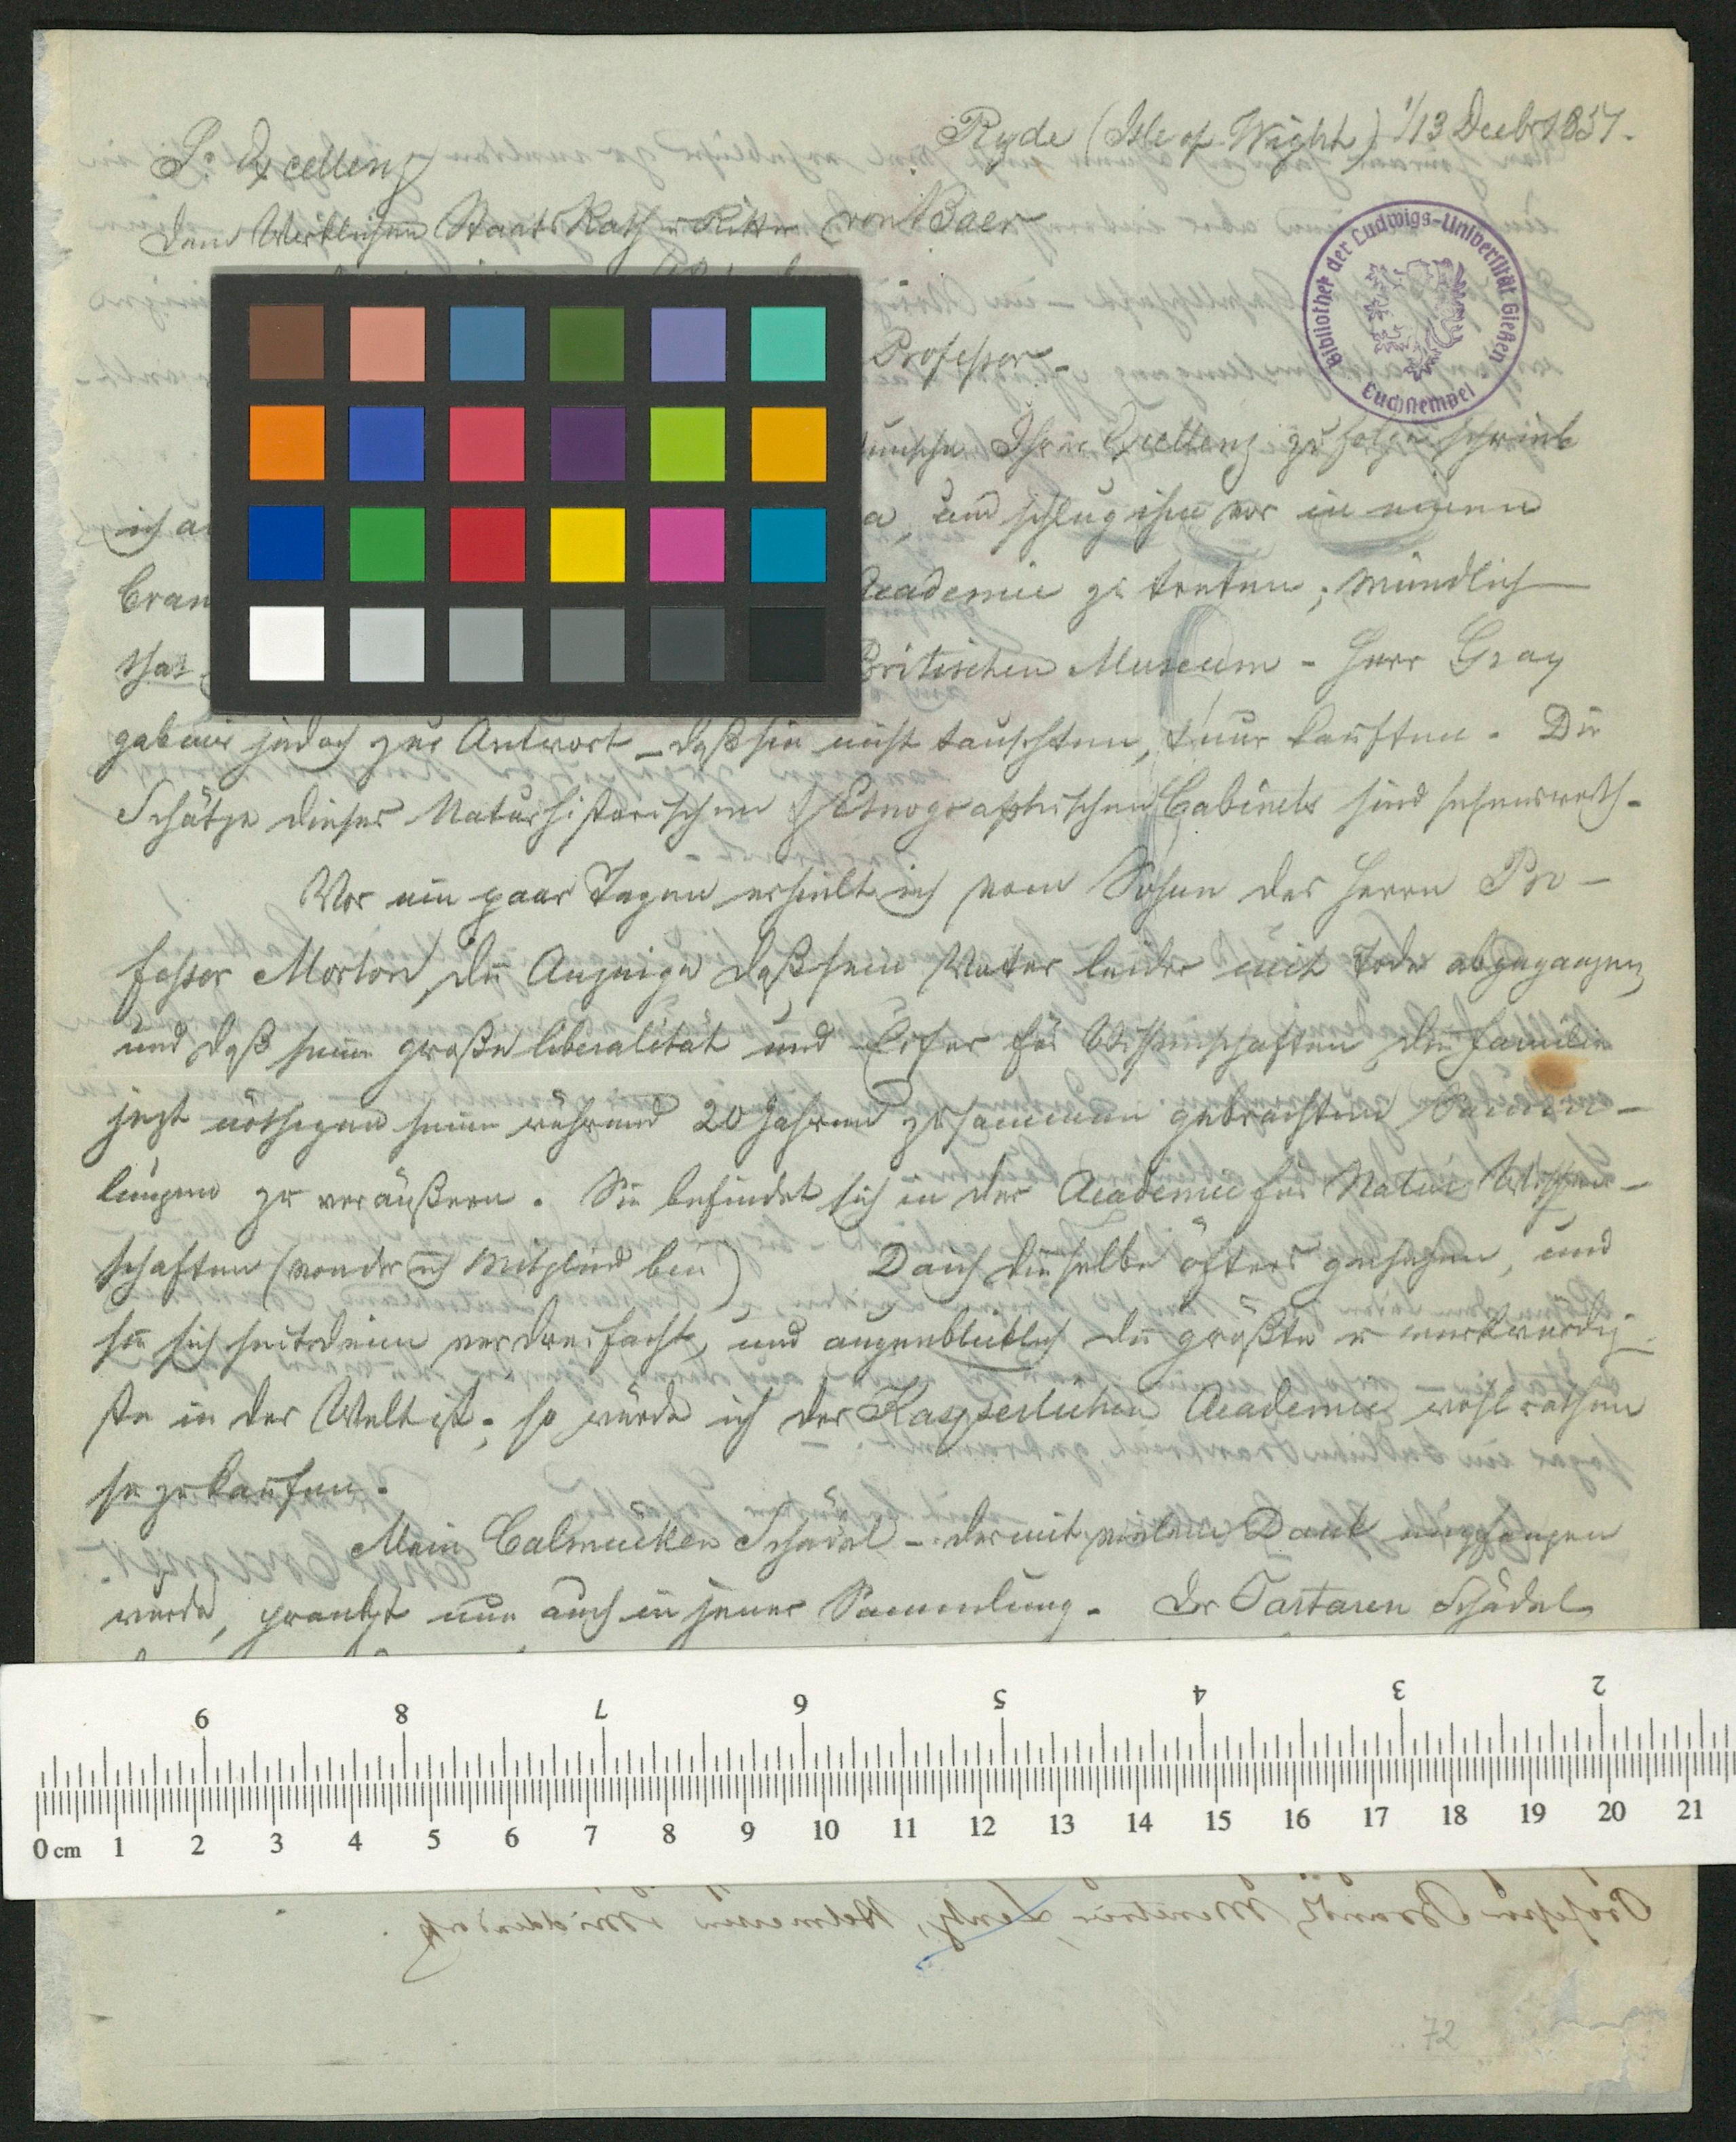 Ryde (Isle of Wight) 1/13 Decbr 1851.
Sr Excellenz
dem Wirklichen Staats Rath u Ritter von Baer
Bibliothek der Ludwigs-Universität Gießen
Professor.
wunsche Ihrer Excellenz zu folge schrieb
ich a
a, und schlug ihm vor in einen
Academie zu treten; mündlich
that
Britischen Museum - Herr Gray
gab mir jedoch zur Antwort - daß sie nicht tauschten, nur kauften. Die
Schätze dieses Naturhistorischen & Etnographischen Cabinets sind sehenswerth.
Vor ein paar Tagen erhielt ich vom Sohne des Herrn Pro-
fessor Morton die Anzeige daß sein Vater leider mit Tode abgegangen
und daß seine große liberalität und Eifer für Wissenschaften die Familie
jezt nöthigen seine während 20 Jahren zusammen gebrachten Samm-
lungen zu veräußern. Sie befindet sich in der Academie für Natur Wissen-
schaften (wovon ich Mitglied bin) Da ich dieselbe öfters gesehen, und
sie sich seitdem verdreifacht, und augenblicklich die größte u merkwürdig-
ste in der Welt ist; so würde ich der Kayserlichen Academie wohl rathen
sie zu kaufen.
Mein Calmücken Schädel - der mit vielem Dank empfangen
wurde, prankt nun auch in jener Sammlung. Der Tartaren Schädel
6 8 7 6 5 4 3 2
0 cm 1 2 3 4 5 6 7 8 9 10 11 12 13 14 15 16 17 18 19 20 21
Professor Brandt, Menetries, Lenz, Helmersen Middendorf
72